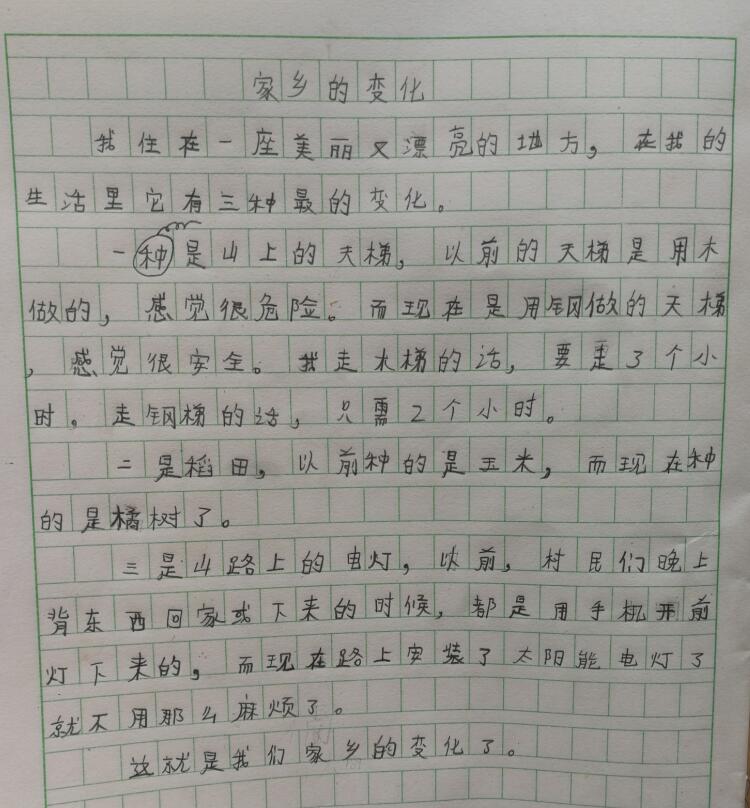 家乡的变化
我住在一座美丽又漂亮的地方，在我的
生活里它有三种最的变化。
一种是山上的天梯，以前的天梯是用木
做的，感觉很危险。而现在是用钢做的天梯
，感觉很安全。我走木梯的话，要走3个小
时。走钢梯的话，只需2个小时。
二是稻田，以前种的是玉米，而现在种
的是橘树了。
三是山路上的电灯，以前，村民们晚上
背东西回家或下来的时候，都是用手机开前
灯下来的，而现在路上安装了太阳能电灯了
就不用那么麻烦了。
这就是我们家乡的变化了。